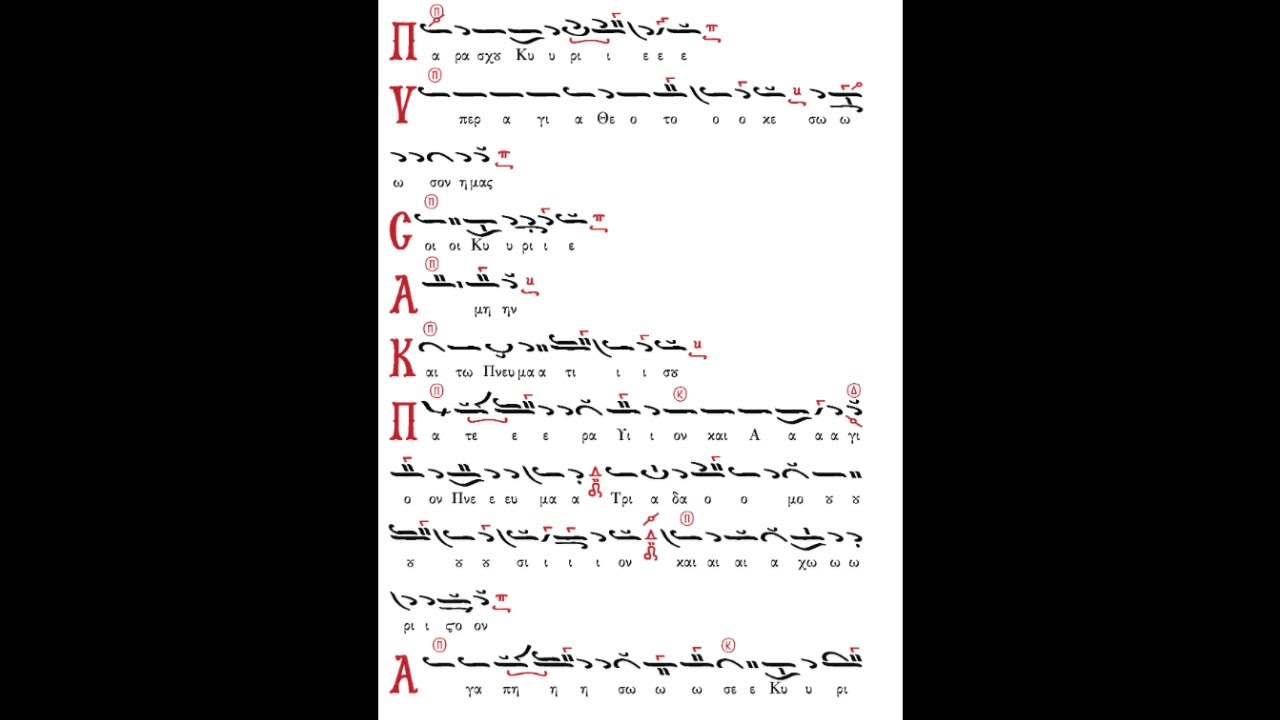 Π α ρα σχȣ Κυ υ ρι ι ε ε ε
Υ περ α γι α Θε ο το ο ο κε σω ω
ω σον η μας
C οι οι Κυ υ ρι ι ε
Α μη ην
Κ αι τω Πνευ μα α τι ι ι σȣ
Π α τε ε ε ρα Υι ι ον και Α α α α γι
ο ον Πνε ε ευ μα α Τρι α δα ο ο μο ȣ ȣ
ȣ ȣ ȣ σι ι ι ι ον και αι αι α χω ω ω
ρι ι ϛο ον
Α γα πη η η σω ω ω σε ε Κυ υ ρι